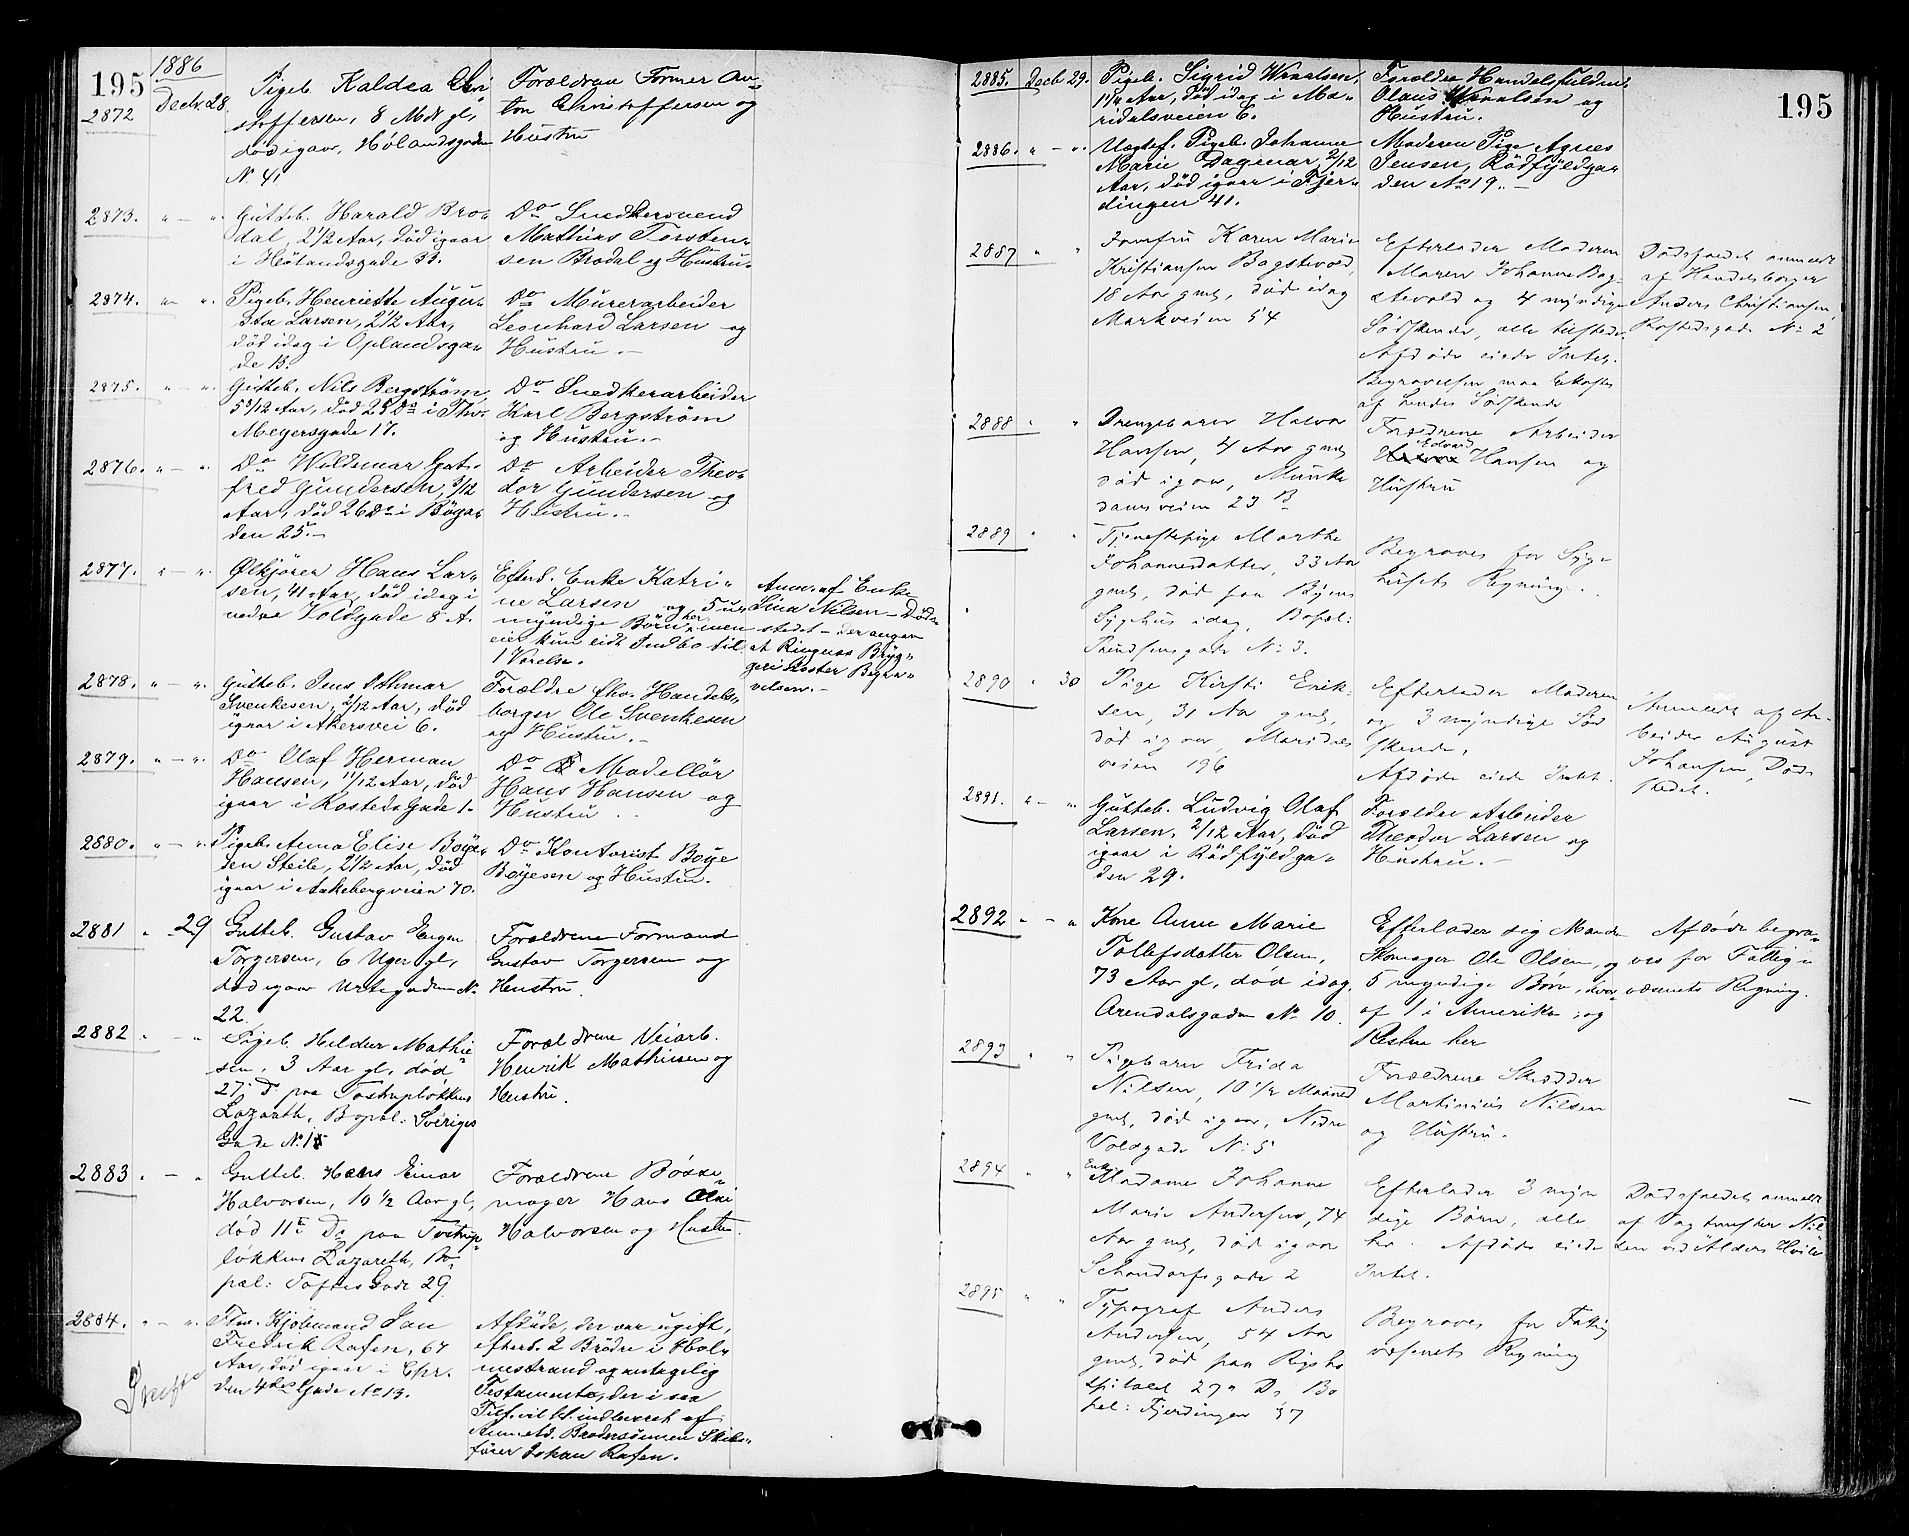 195
1886
2872
Decbr. 28.
Pigeb. Kaldea Chri
stoffersen, 8 Mdr gl,
död igaar, Hølandsgaden
No 41
Forældrene Former An-
ton Christoffersen og
Hustru
2873. " — ".
Gutteb. Harald Bro-
dal, 2 1/2 Aar, död igaar
i Hølandsgade 33.
Do Snedkersvend
Mathias Torsten-
sen Brodal og Hustru.
2874. " — ".
Pigeb. Henriette Augu-
sta Larsen, 2 1/2 Aar,
död idag i Oplandsga-
de 13.
Do Murerarbeider
Leonhard Larsen og
Hustru.
2875. " — ".
Gutteb. Nils Bergström,
5 3/12 Aar, död 25 Do i Thv.
Meyersgade 17.
Do Snedkerarbeider
Karl Bergström
og Hustru.
2876. " — ".
Do Woldemar Got-
fred Gundersen, 3/12
Aar, död 26 Do i Bøga-
den 25.
Do Arbeider Theo-
dor Gundersen og
Hustru.
2877. " — ".
Ølkjører Hans Lar-
sen, 41 Aar, död idag i
nedre Voldgade 8 A.
Efterl. Enke Katri-
ne Larsen og 5 u-
myndige Børn her, men
eier kun eidt Indbo til
1 Værelse.
Anm. af Enke
Lina Nilsen - Död-
stedet - der angav
at Ringnes Bryg-
geri koster Begra-
velsen.
2878. " — ".
Gutteb. Jens Othmar
Svenkesen, 2/12 Aar, död
igaar i Akersvei 6.
Forældre fhv. Handels-
borger Ole Svenkesen
og Hustru.
2879. " — ".
Do Olaf Herman
Hansen, 11/12 Aar, död
igaar i Rosteds Gade 1.
Do Modellör
Hans Hansen og
Hustru.
2880. " — ".
Pigeb. Anna Elise Boye-
sen Steile, 2 1/2 Aar, död
igaar i Aakebergveien 70.
Do Kontorist Boye
Boyesen og Hustru.
2881 " 29
Gutteb. Gustav Eugen
Torgersen, 6 Uger gl,
død igaar Urtegaden No
22.
Forældrene Formand
Gustav Torgersen og
Hustru.
2882 " "
Pigeb. Hildur Mathie
sen, 3 Aar gl, død
27 D paa Tostrupløkkens
Lazareth, Bopæl: Sveriges
Gade No 15
Forældrene Veiarb.
Henrik Mathiesen og
Hustru.
2883 . — "
Gutteb. Hans Einar
Halvorsen, 10 1/2 Aar gl,
død 11te Do paa Tostrup-
løkkens Lazareth, Bo-
pæl: Toftes Gade 29
Forældrene Bøsse-
mager Hans
Halvorsen og Hustru.
2884. " — ".
Skifte
Fhv. Kjöbmand Jan
Fredrik Rafen, 67
Aar, död igaar i Chr.
den 4des Gade No 13.
Afdöde, der var ugift,
efterl. 2 Brödre i Hol-
mestrand og antagelig
Testamente, der i saa
Tilf. vil bl. indleveret af
Anmeld. Brodersönnen Skibs-
fører Johan Rafen.
195
2885. Decb 29.
Pigeb. Sigrid Wraalsen,
1 1/4 Aar, död idag i Ma-
ridalsveien 6.
Forældre Handelsfuldm.
Olaus Wraalsen og
Hustru.
2886. " — ".
Uægtef. Pigeb. Johanne
Marie Dagmar, 2/12
Aar, död igaar i Fjer-
dingen 41.
Moderen Pige Agnes
Jensen, Rödfyldga-
den No 19.
2887 " "
Jomfru Karen Marie
Kristiansen Bagstevold,
18 Aar gml, død idag
Markveien 54
Efterlader Moderen
Maren Johanne Bag-
stevold og 4 myndige
Sødskende, alle tilstede.
Afdøde eiede Intet.
Begravelsen maa bekostes
af hendes Sødskende
Dødsfaldet anmeldt
af Handelsborger
Anders Christiansen,
Rostedsgade No 2
2888 " "
Drengebarn Halvor
Hansen, 4 Aar gml,
død igaar, Munke
damsveien 23 B
Forældrene Arbeider
Edvard Hansen og
Hustru
2889 " "
Tjenestepige Marthe
Johannesdatter, 33 Aar
gml, død paa Byens
Sygehus idag, Bopæl:
Trondhjemsgade No 3.
Begraves for Syge
husets Regning.
2890 " 30
Pige Kirsti Erik-
sen, 31 Aar gml,
død igaar, Maridals
veien 196
Efterlader Moderen
og 3 myndige Sød
skende.
Afdøde eiede Intet.
Anmeldt af Ar-
beider August
Johansen, Død-
stedet.
2891. " — "
Gutteb. Ludvig Olaf
Larsen, 2/12 Aar, död
igaar i Rödfyldga-
den 29.
Forældre Arbeider
Theodor Larsen og
Hustru.
2892 " — "
Kone Anne Marie
Tollefsdatter Olsen,
73 Aar gl, død idag,
Arendalsgaden No 10.
Efterlader sig Manden
Skomager Ole Olsen, og
5 myndige Børn, hvor
af 1 i Amerika og
Resten her
Afdøde begra-
ves for Fattig-
væsenets Regning.
2893 " "
Pigebarn Frida
Nilsen, 10 1/2 Maaned
gml, død igaar, Nedre
Voldgade No 5
Forældrene Skrædder
Martinius Nilsen
og Hustru.
2894 " "
Enke
Madame Johanne
Marie Andersen, 74
Aar gml, død igaar
Schandorfsgade 2
Efterlader 3 myn
dige Børn, alle
her. Afdøde eiede
Intet.
Dødsfaldet anmeldt
af Vagtmester Nil
sen ved Alders Hvile
2895 " "
Typograf Anders
Andersen, 54 Aar
gml, død paa Rigsho
spitalet 27 D. Bo
pæl: Fjerdingen 37
Begraves for Fattig
væsenets Regning